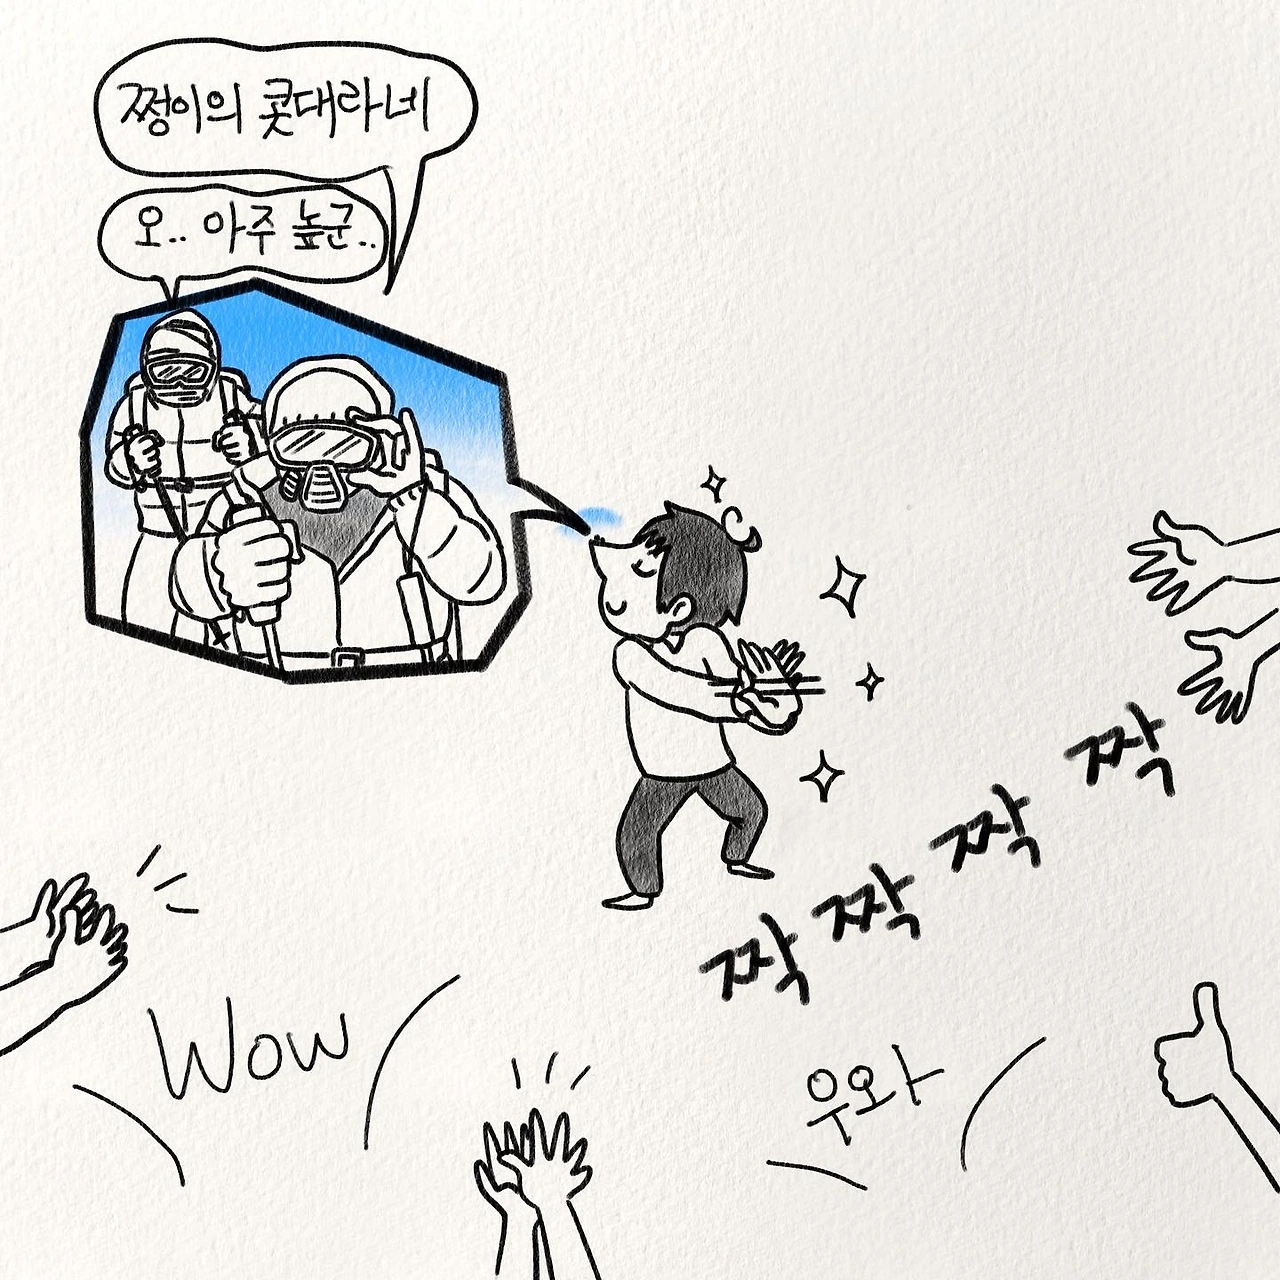 쩡이의 콧대라네
오.. 아주 높군..
짝 짝 짝 짝
Wow
우와